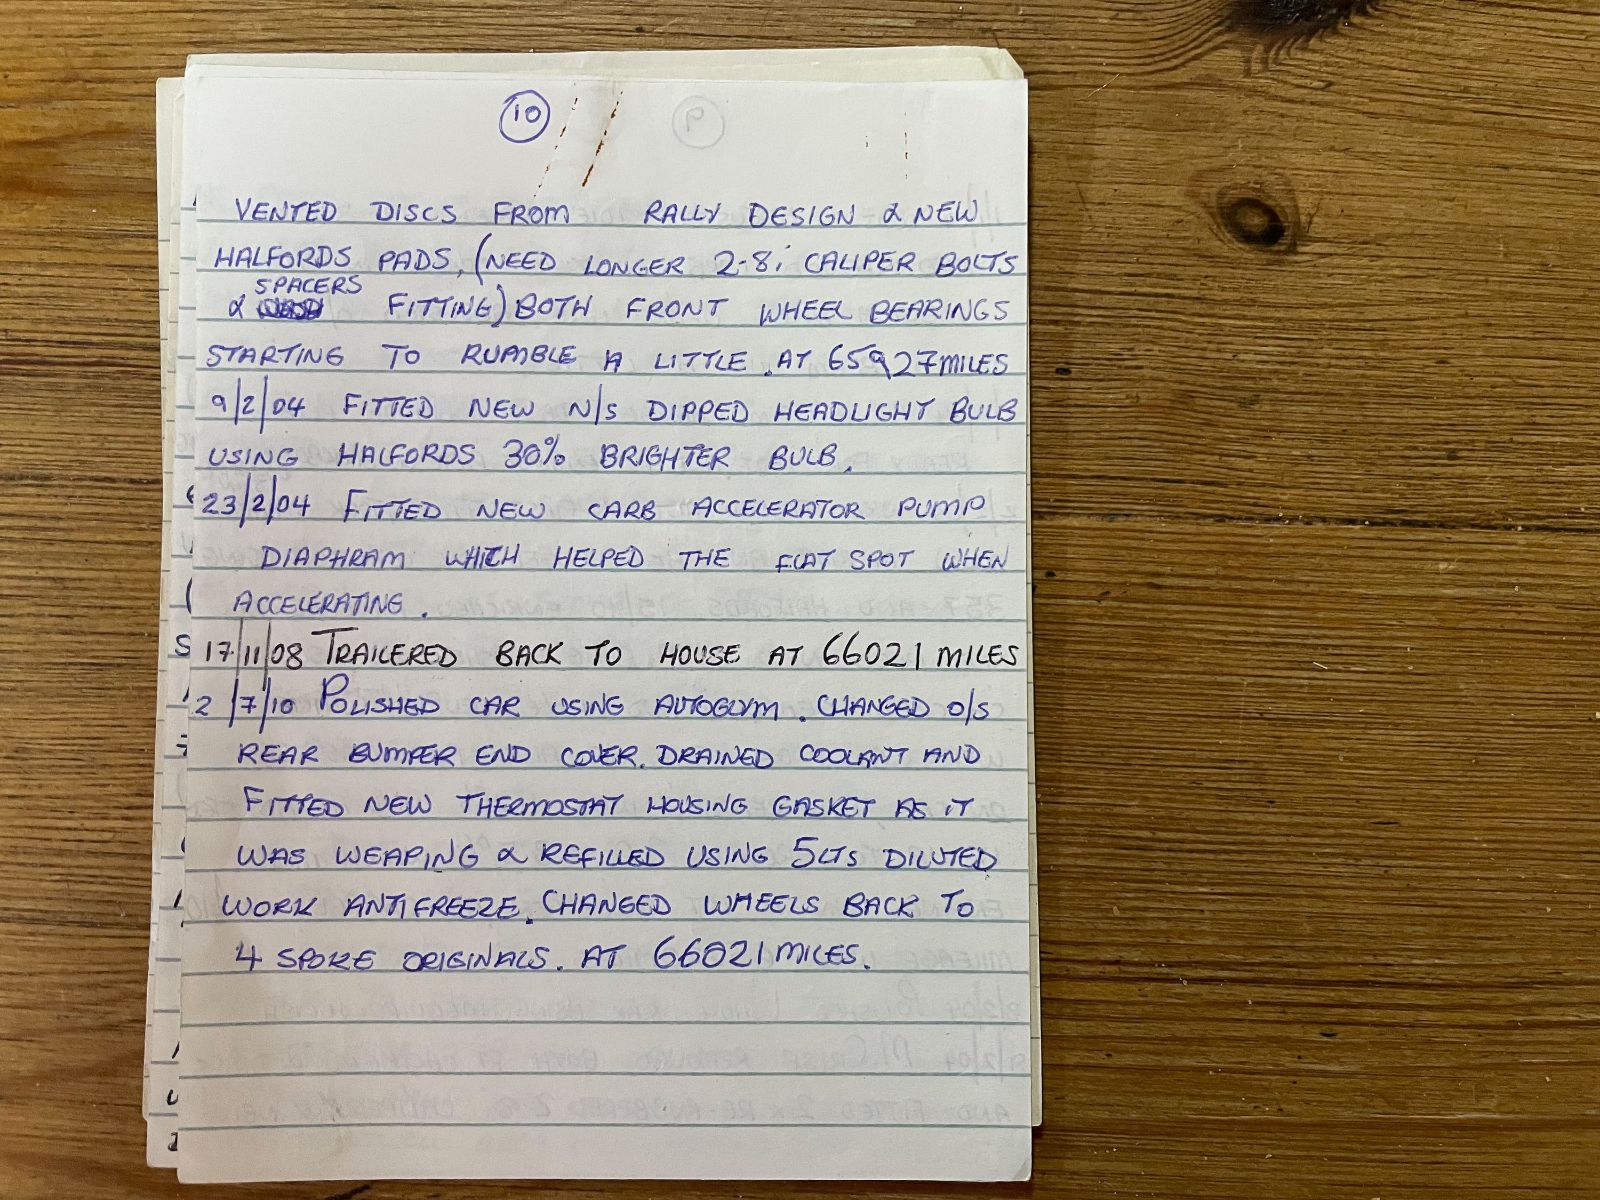 10
VENTED DISCS FROM RALLY DESIGN & NEW
HALFORDS PADS, (NEED LONGER 2-8i CALIPER BOLTS
SPACERS
& FITTING) BOTH FRONT WHEEL BEARINGS
STARTING TO RUMBLE A LITTLE. AT 65927 MILES
9/2/04 FITTED NEW N/S DIPPED HEADLIGHT BULB
USING HALFORDS 30% BRIGHTER BULB.
23/2/04 FITTED NEW CARB ACCELERATOR PUMP
DIAPHRAM WHICH HELPED THE FLAT SPOT WHEN
ACCELERATING.
17/11/08 TRAILERED BACK TO HOUSE AT 66021 MILES
2/7/10 POLISHED CAR USING AUTOGLYM. CHANGED O/S
REAR BUMPER END COVER. DRAINED COOLANT AND
FITTED NEW THERMOSTAT HOUSING GASKET AS IT
WAS WEAPING & REFILLED USING 5LTS DILUTED
WORK ANTIFREEZE. CHANGED WHEELS BACK TO
4 SPOKE ORIGINALS. AT 66021 MILES.